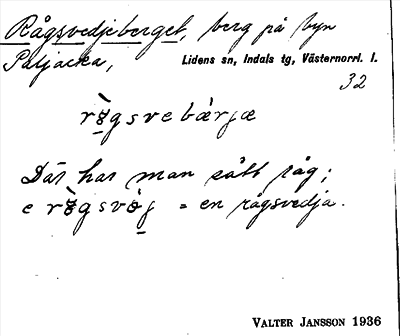 Rågsvedjeberget, berg på byn
Paljacka, Lidens sn, Indals tg, Västernorrl. l.
32
Där har man sått råg;
= en rågsvedja.
VALTER JANSSON 1936